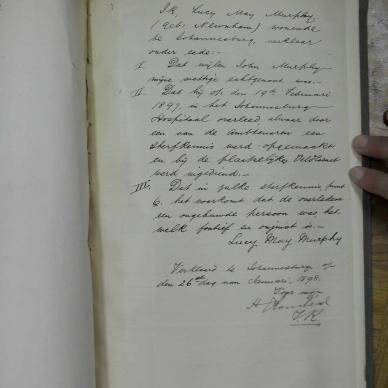 Ik, Lucy May Murphy
(geb: Newnham) wonende
te Johannesburg, verklaar
onder eede:-
I. Dat wijlen John Murphy
mijne wettige echtgenoot was.-
II. Dat hij op den 19den Februari
1897 in het Johannesburg
Hospitaal overleed, alwaar door
een van de ambtenaren een
sterfkennis werd opgemaakt
en bij de plaatselijke Veldcornet
werd ingediend.-
III. Dat in zulke sterfkennis, punt
6. het voorkomt dat de overledene
een ongehuwde persoon was, het
welk foutief en onjuist is.-
Lucy May Murphy
Verklaard te Johannesburg op
den 26sten dag van Januari, 1898.
Voor mij
H
V.R.